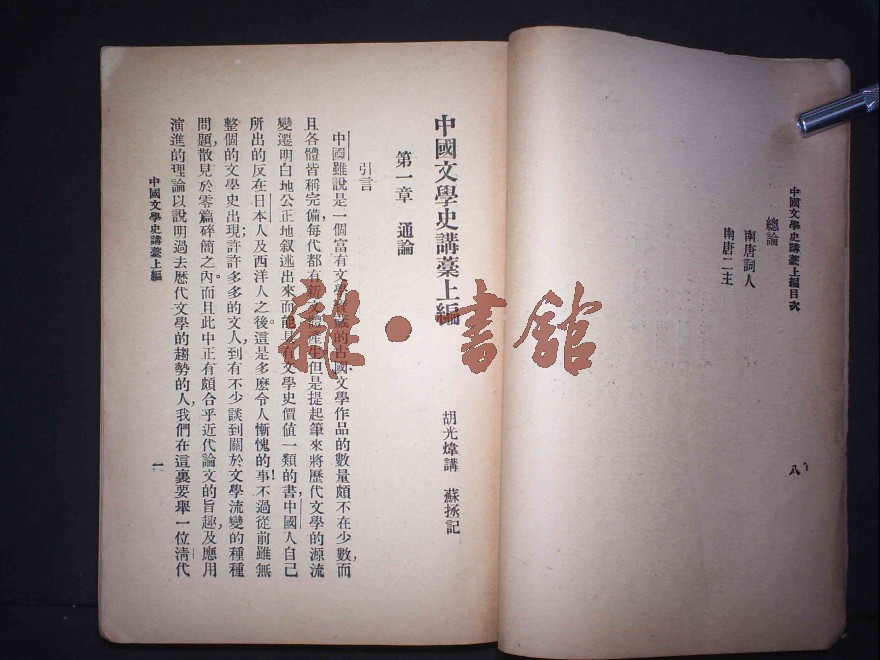 中國文學史講藁上編目次
總論
南唐詞人
南唐二主
八
中國文學史講藁上編
胡光煒講 蘇拯記
第一章 通論
引言
中國雖說是一個富有文學寶藏的古國文學作品的數量頗不在少數,而
且各體皆稱完備,每代都有新文體產生但是提起筆來將歷代文學的源流
變遷明白地公正地敘述出來而能具有文學史價值一類的書,中國人自己
所出的反在日本人及西洋人之後。這是多麼令人慚愧的事!不過從前雖無
整個的文學史出現;許許多多的文人,到有不少談到關於文學流變的種種
問題,散見於零篇碎簡之內。而且此中正有頗合乎近代論文的旨趣,及應用
演進的理論以說明過去歷代文學的趨勢的人,我們在這裏要舉一位清代
中國文學史講藁上編
一
雜·書館